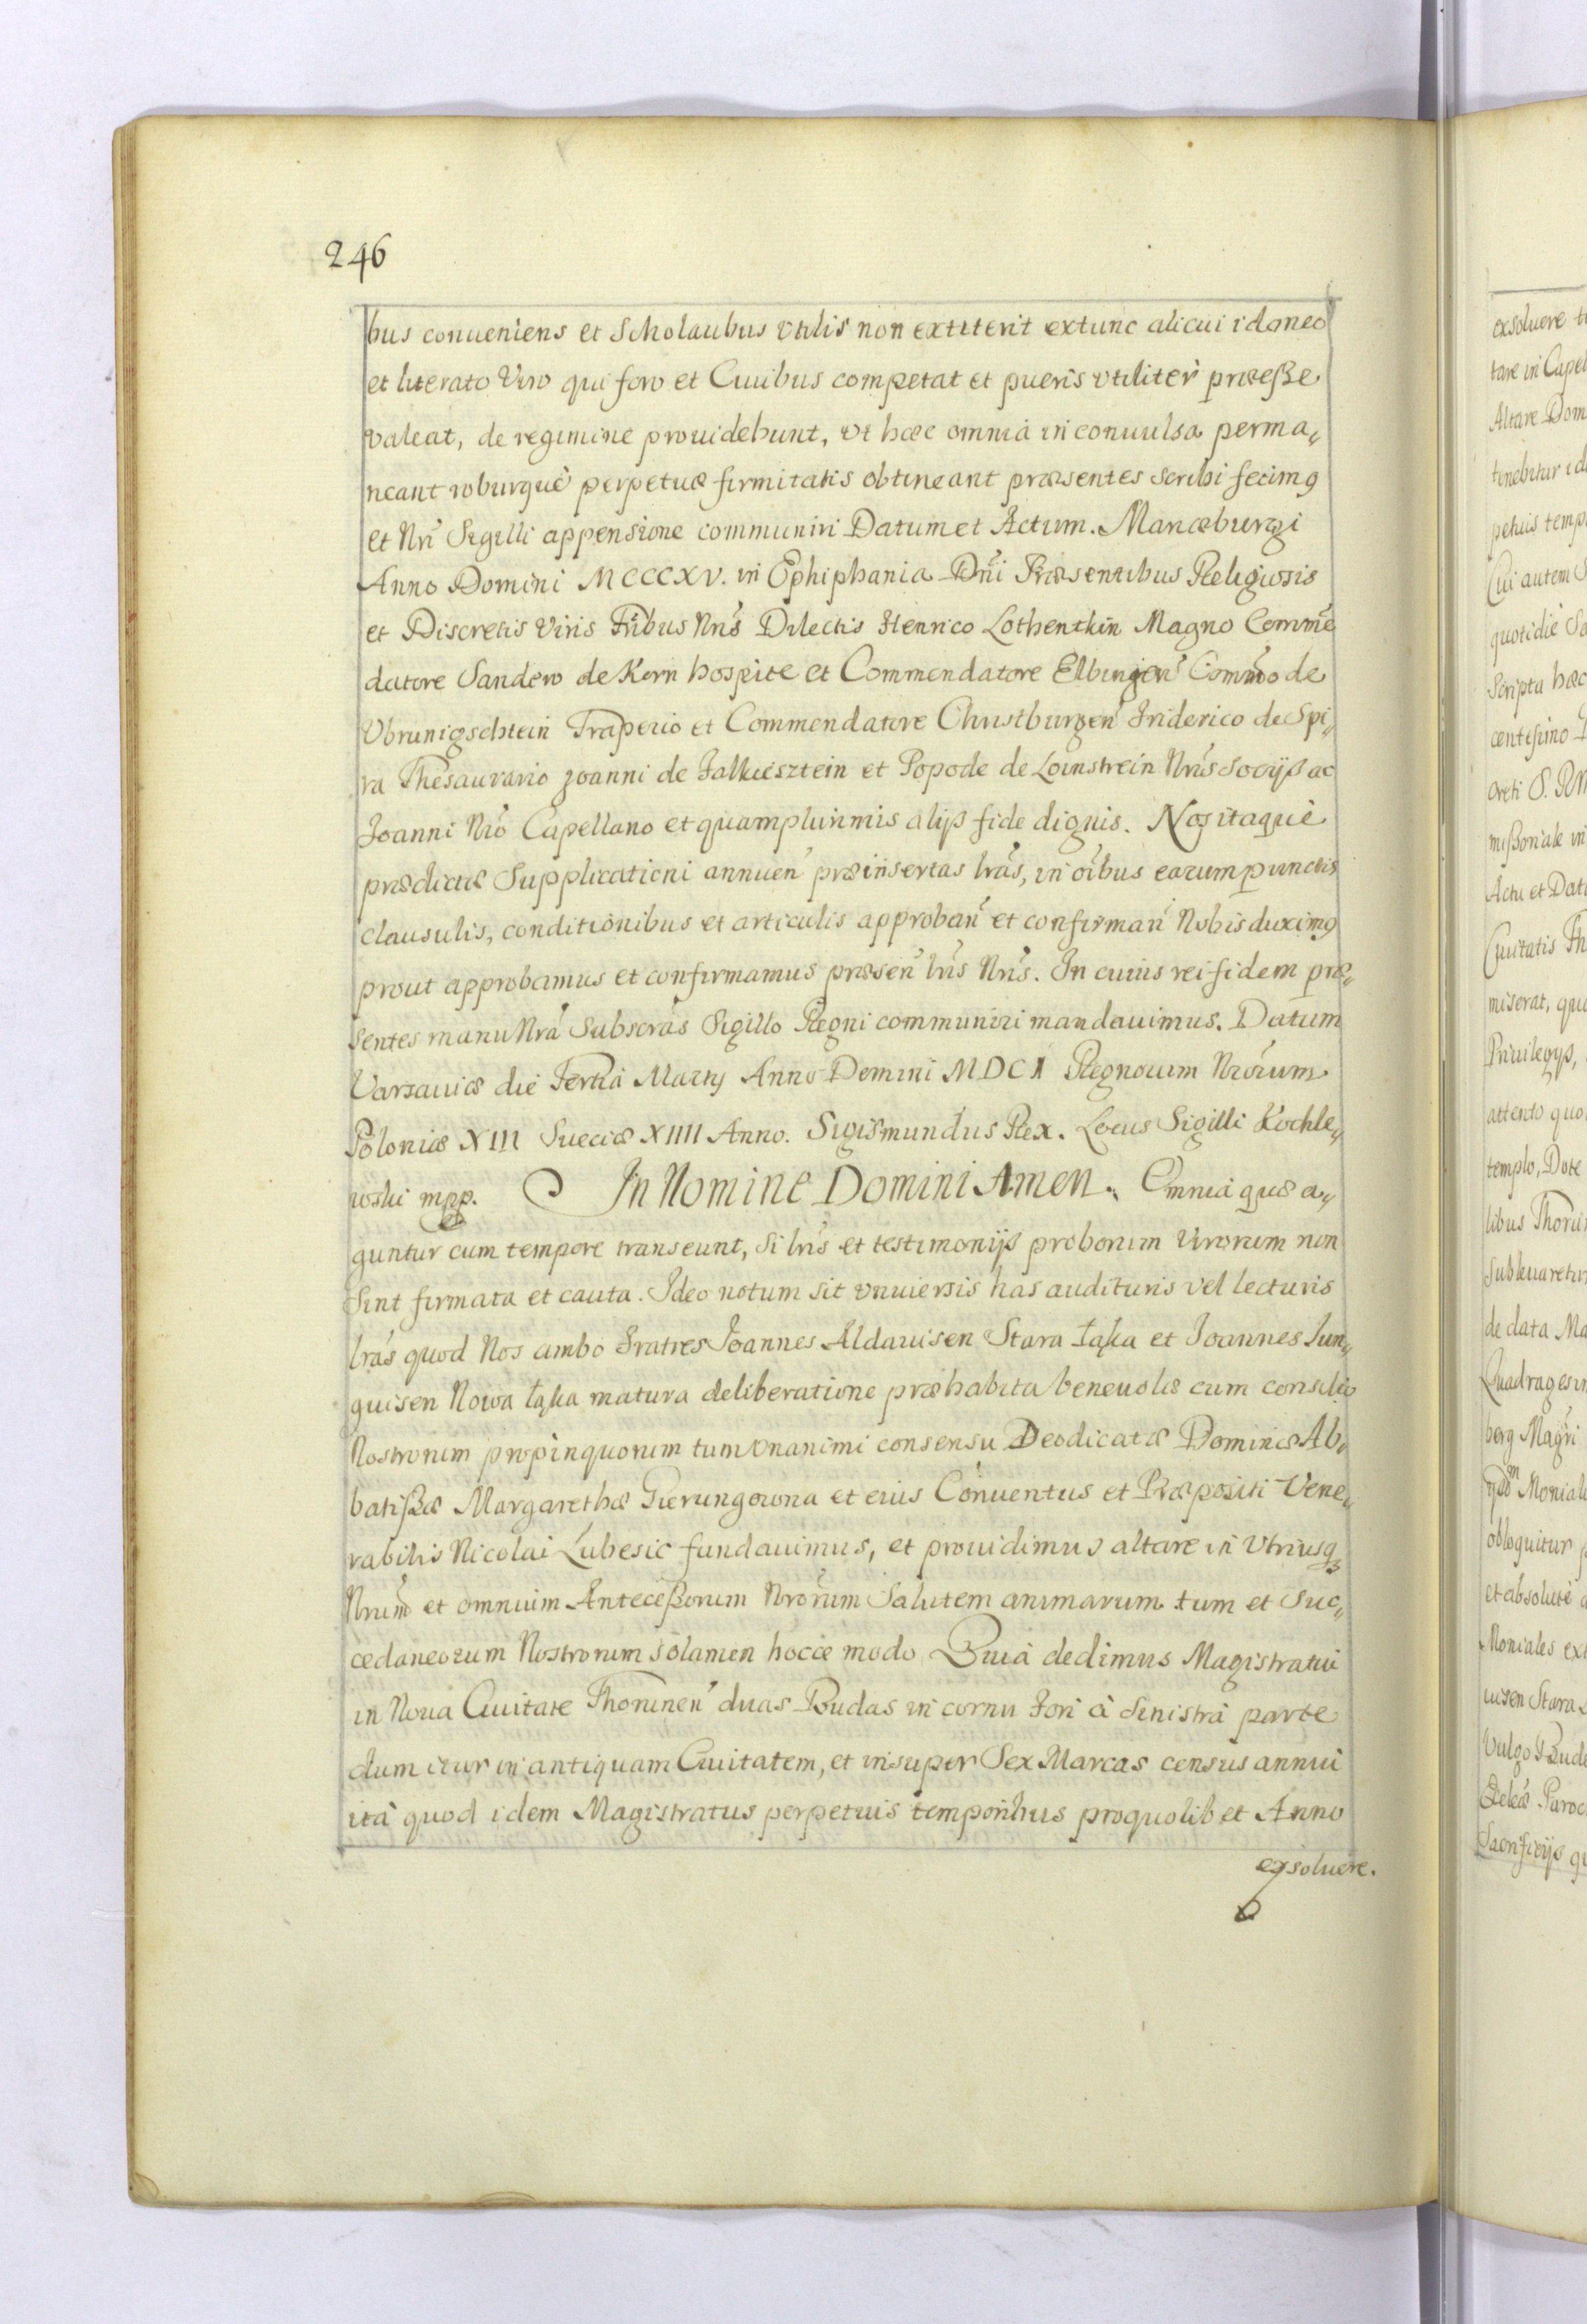 246
bus conueniens et Scholaribus vtilis non extiterit extunc alicui idoneo
et literato Viro qui foro et Ciuibus competat et pueris vtilitèr præeße
valeat, de regimine prouidebunt, vt hæc omnia inconuulsa perma„
neant roburquè perpetuæ firmitatis obtineant præsentes scribi fecimꝰ
et Nrĩ Sigilli appensione communiri Datum et Actum. Manæburgi
Anno Domini MCCCXV. in Ephiphania Dnĩ Præsentibus Religiosis
et Discretis Viris Frĩbus Nrĩs Dilectis Henrico Lothentkin Magno Commẽ
datore Sandero de Korn hospite et Commendatore Elbingeñ Commõ de
Vbrunigschtein Traperio et Commendatore Christburgeñ Friderico de Spi„
ra Thesaurario Joanni de Falkiesztein et Popode de Loinstrein Nrĩs Socijs ac
Joanni Nrõ Capellano et quamplurimis alijs fide dignis. Nos itaquè
prædictæ Supplicationi annueñ præinsertas lrãs, in oĩbus earum punctis
clausulis, conditionibus et articulis approbañ et confirmañ Nobis duximꝰ
prout approbamus et confirmamus præseñ lrĩs Nrĩs. In cuius rei fidem præ„
sentes manu Nrã Subscrãs Sigillo Regni communiri mandauimus. Datum
Varsauiæ die Tertia Martij Anno Domini MDCI Regnorum Nrõrum
Poloniæ XIII Sueciæ XIIII Anno. Sigismundus Rex. Locus Sigilli Kochle„
wski mpp. In Nomine Domini Amen. Omnia quæ a„
guntur cum tempore transeunt, si lrĩs et testimonijs proborum Virorum non
sint firmata et cauta. Ideo notum sit vniuersis has audituris vel lecturis
lrãs quod Nos ambo Fratres Joannes Aldauisen Stara Łąka et Joannes Jun„
guisen Nowa Łąka matura deliberatione præhabita beneuolæ cum consilio
Nostrorum propinquorum tum vnanimi consensu Deodicatæ Dominæ Ab„
batißæ Margarethæ Gierungowna et eius Conuentus et Præpositi Vene„
rabilis Nicolai Lubesic fundauimus, et prouidimus altare in Vtriusqꝫ
Nrũm et omnium Anteceßorum Nrõrum Salutem animarum tum et Suc„
cedaneorum Nostrorum solamen hocce modo Quia dedimus Magistratui
in Noua Ciuitate Thoruneñ duas Budas in cornu Fori à sinistrâ parte
dum itur in antiquam Ciuitatem, et insuper Sex Marcas census annui
ità quod idem Magistratus perpetuis temporibus pro quolibet Anno
exsoluere.
exsoluere
tare in Capel
Altare Dom
tenebitur
petuis temp
Cui autem
quotidiè
Scripta hæc
centesimo
Actu et Dat
Ciuitatis Th
miserat, qu
Priuilegijs,
attento quo
templo, Dote
libus Thoru
subleuaretur
de data Ma
Quadragesim
berg Magrĩ
Monial
obloquitur
et absolutè
Moniales ext
uisen Stara
Vulgo Bude
Paroc